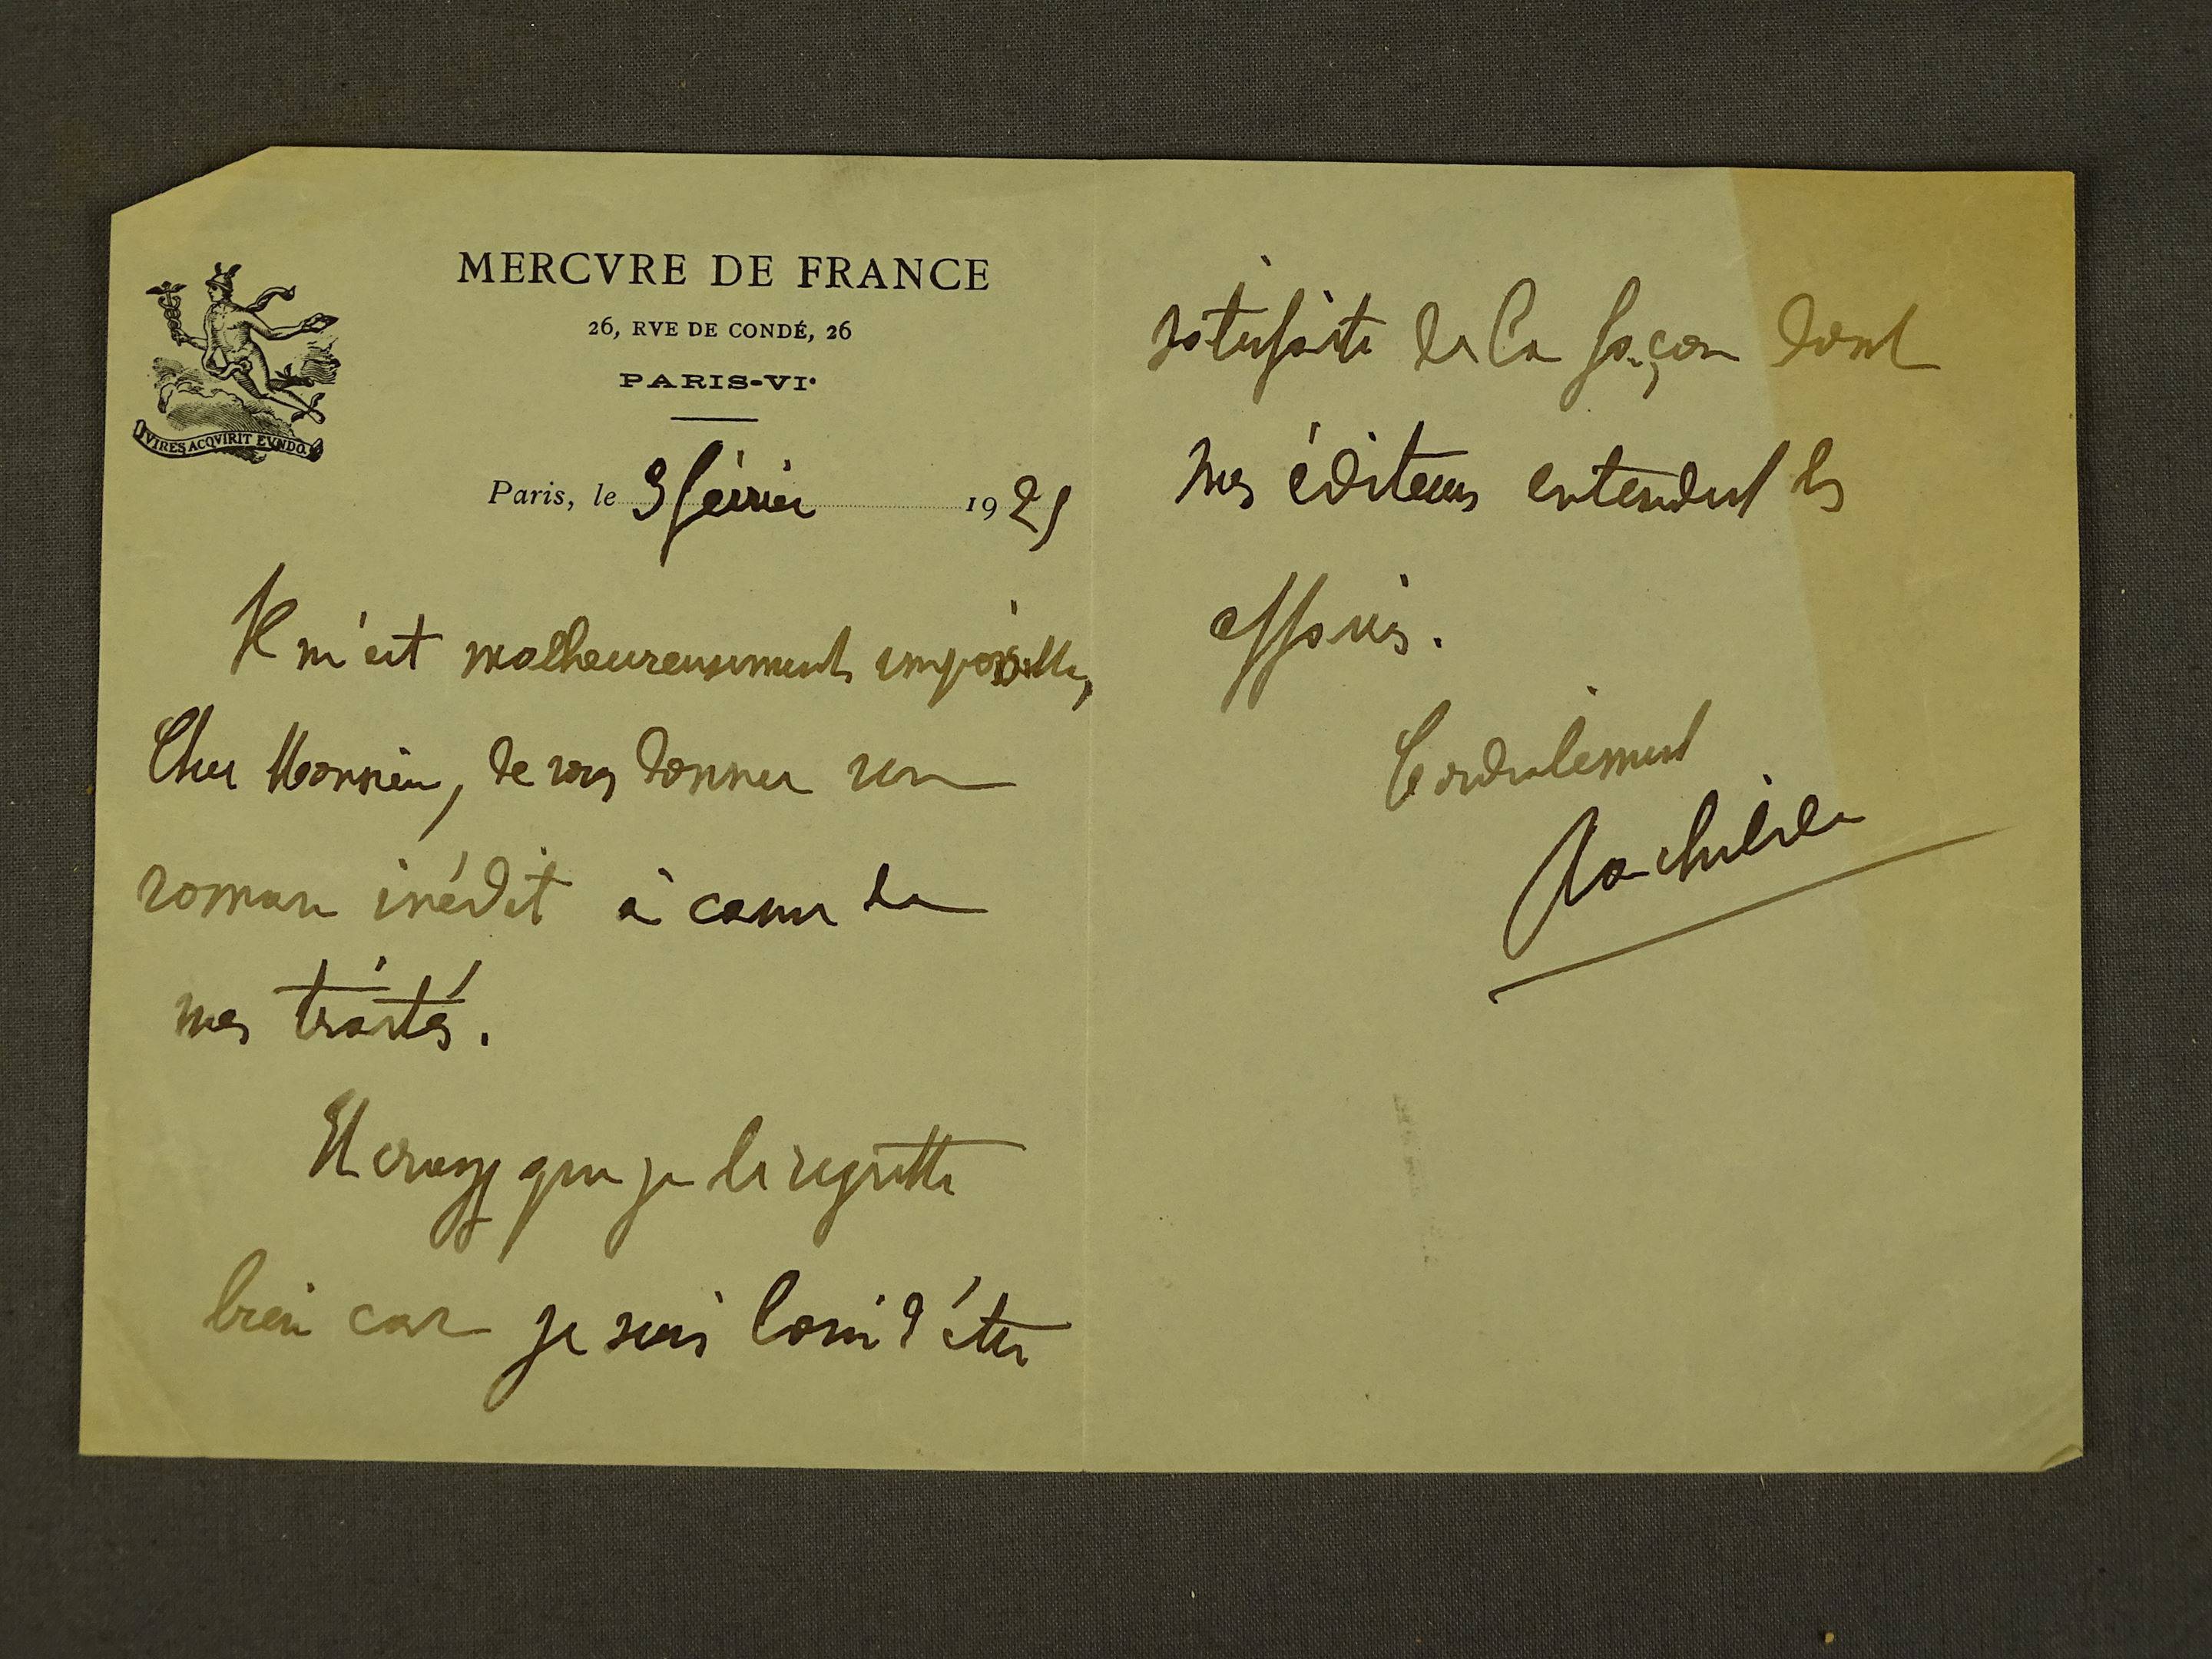 MERCVRE DE FRANCE
26, RVE DE CONDÉ, 26
PARIS-VIe
VIRES ACQVIRIT EVNDO
Paris, le 9 février 1925
Il m'est malheureusement impossible,
Cher Monsieur, de vous donner un
roman inédit à cause de
mes traités.
Et croyez que je le regrette
bien car je suis loin d'être
satisfaite de la façon dont
mes éditeurs entendent les
affaires.
Cordialement
Rachilde